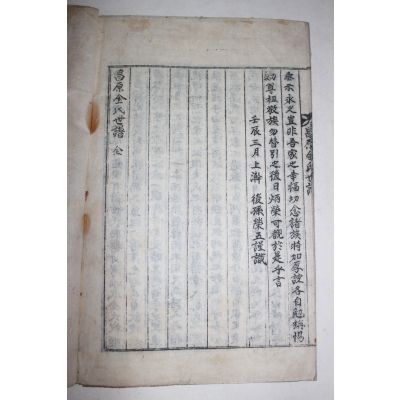 永之豈非吾家之幸福切念諸族將加厚誼各自勉
尊祖敬族勿替引之後日炳榮可觀於是乎言
壬辰三月上澣 後孫榮五謹識
昌原金氏世譜